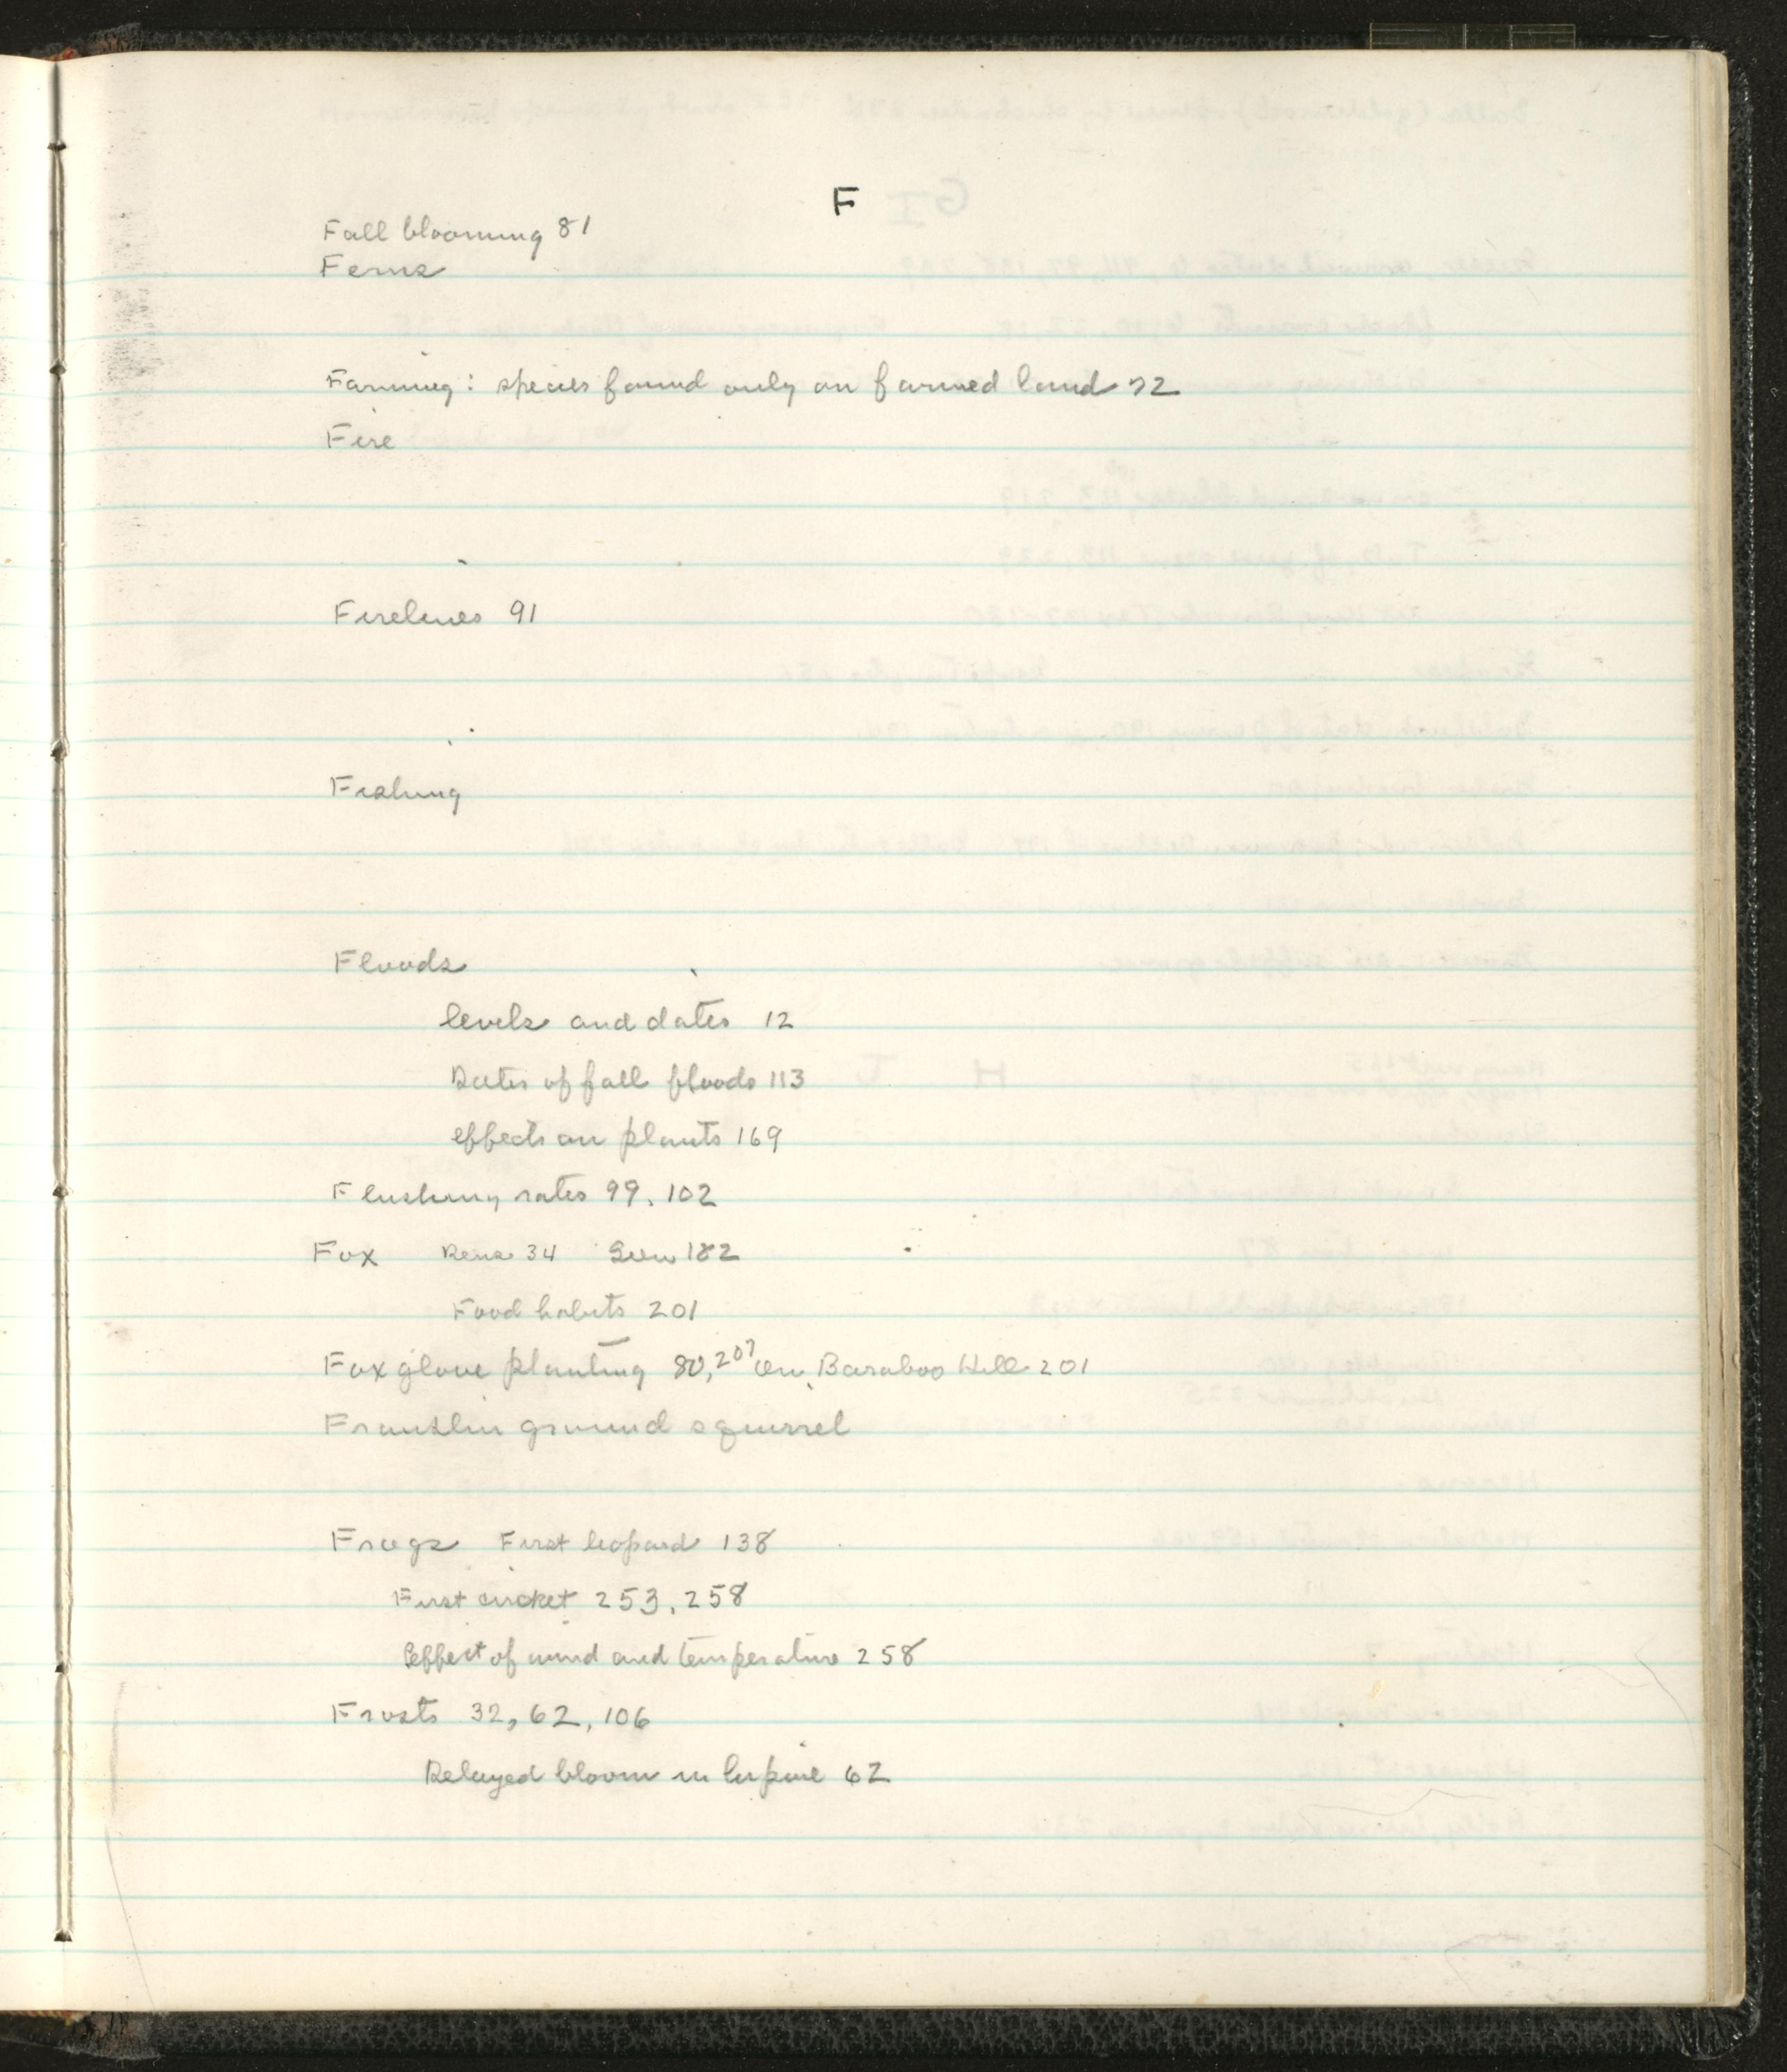 F
Fall blooming 81
Ferns
Farming: species found only on farmed land 72
Fire
Firelines 91
Fishing
Floods
levels and dates 12
Dates of fall floods 113
effects on plants 169
Flushing rates 99, 102
Fox Dens 34 Seen 182
Food habits 201
Fox glove planting 80, 207 on Baraboo Hill 201
Franklin ground squirrel
Frogs First leopard 138
First cricket 253, 258
Effect of wind and temperature 258
Frosts 32, 62, 106
Delayed bloom in lupine 62